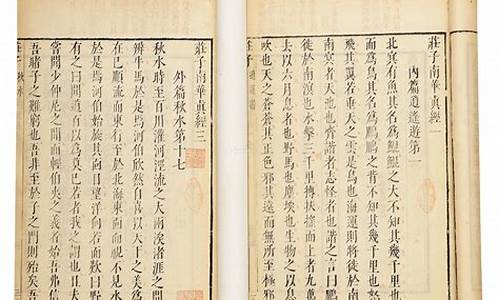 莊子南華眞經一
內篇逍遙遊第一
北冥有魚其名爲鯤鯤之大不知其幾千里也
而爲鳥其名爲鵬鵬之背不知其幾千里也
飛其翼若垂天之雲是鳥也海運則將徙於
南冥者天池也齊諧者志怪者也諧之言曰鵬
徙於南溟也水擊三千里摶扶搖而上者九萬
去以六月息者也野馬也塵埃也生物之以息
吹也天之蒼蒼其正色邪其遠而無所至
莊子 逍遙遊
莊子南華眞經三
外篇秋水第十七
秋水時至百川灌河涇流之大兩涘渚涯之間
辨牛馬於是焉河伯欣然自喜以天下之美爲
在已順流而東行至於北海東面而視不見水
於是焉河伯始旋其面目望洋向若而歎曰野
有之曰聞道百以爲莫己若者我之謂也且夫
嘗聞少仲尼之聞而輕伯夷之義者始吾弗信
吾睹子之難窮也吾非至於子之門則殆矣吾
莊子 秋水